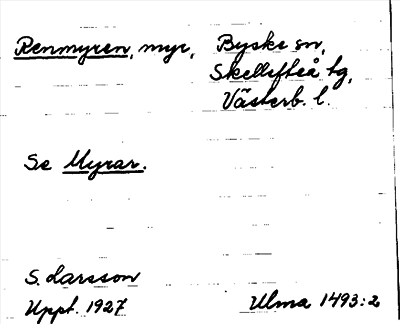 Renmyren, myr, Byske sn,
Skellefteå tg,
Västerb. l.
Se Myrar.
S. Larsson
Uppt. 1927 Ulma 1493:2